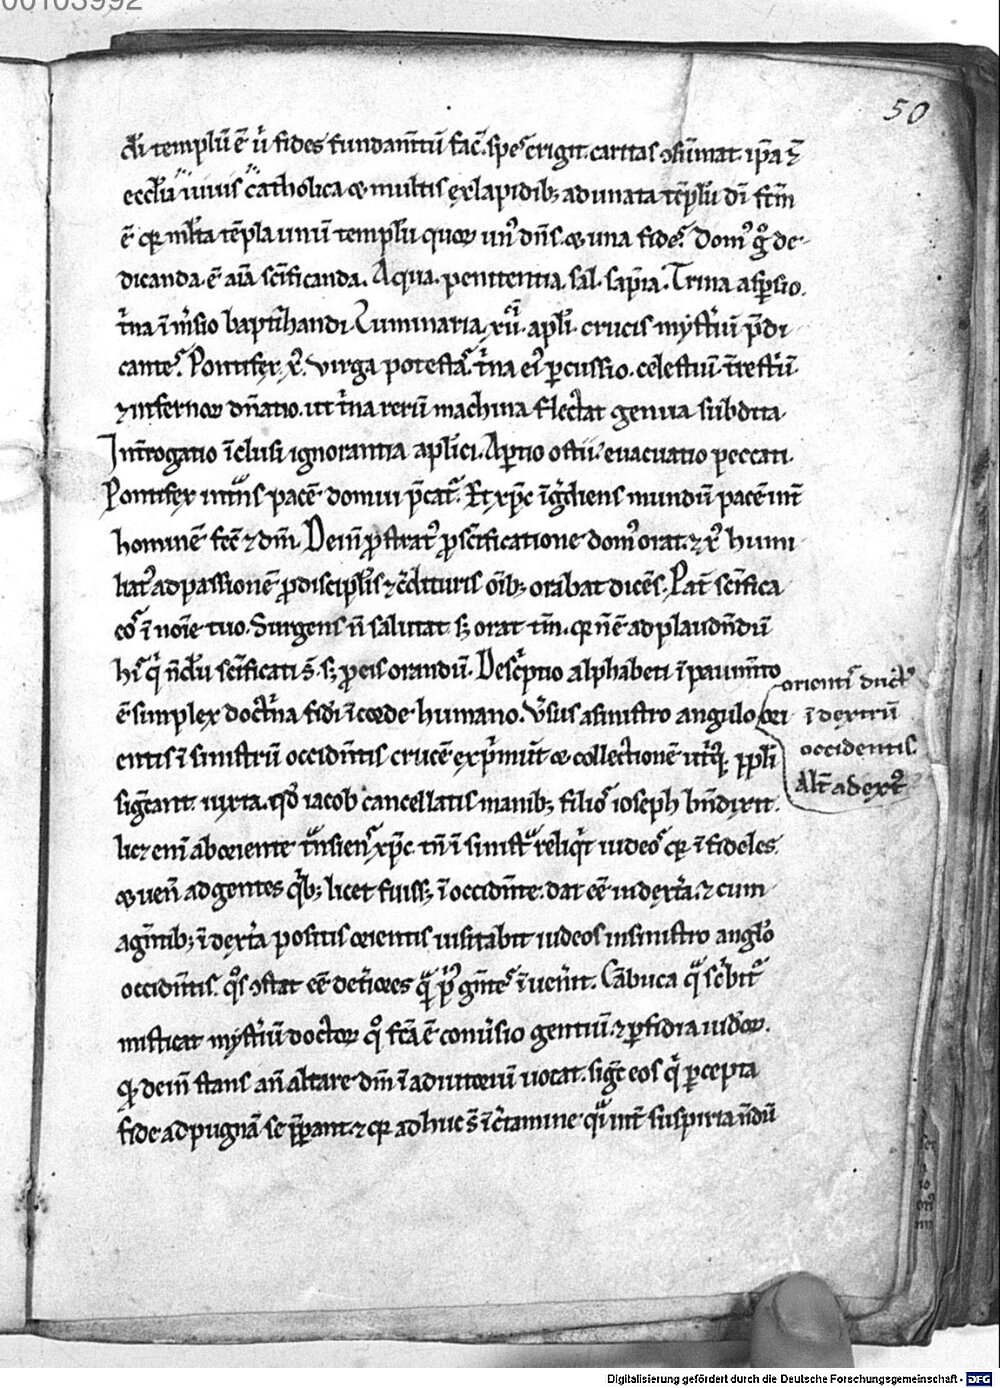 00103992
50
di templū ē ū fides fundam̄tū fac̄ spes erigit caritas ꝯsūmat ipa ē
eccl̄ia uiuis catholica & multis ex lapidib; adunata tēplū dī ftm̄
ē qꝛ ml̄ta tēpla unū templū quoꝝ un᾽ dn̄s & una fides. Dom᾽ g̊ de
dicanda ē aīa sc̄ificanda. Aqua penitentia. sal sapīa. Trina aspsio.
t̄na īmsio baptizandi. Luminaria xii apl̄i crucis mystīū p̄di
cantes. Pontifex xp̄c. Virga potestas. t̄na ei᾽ pcussio. celestiū t̄restiū
⁊ infernoꝝ dn̄atio. ut t̄na rerū machina flectat genua subdita
Int̄rogatio īclusi ignorantia apl̄ici. Aptio ostii euacuatio peccati.
Pontifex int̄ns pacē domui p̄cat᾽. Et xp̄c īgdiens mundū pacē int̄
hominē fec̄ ⁊ dm̄. Dein ꝓstrat᾽ ꝓ sc̄ificatione dom᾽ orat. ⁊ xp̄c humi
liat᾽ ad passionē ꝓ discipl̄is ⁊ c̄dituris oīb; orabat dicēs. Pat̄ sc̄ifica
eos ī noīe tuo. Surgens n̄ salutat s; orat tm̄. qꝛ n̄ ē adplaudn̄dū
his q̄ n̄dū sc̄ificati s̄. s; ꝓ eis orandū. Desc̄ptio alphabeti ī pauim̄to
ē simplex doct̄na fidi ī corde humano. V̄sus a sinistro angulo ori
entis ī sinistrū occidn̄tis crucē exp̄mūt & collectionē ut̄q; ppl̄i
sigc̄ant. iuxta qd̄ iacob cancellatis manib; filios ioseph bn̄dixit.
licꝫ eni ab oriente t̄nsiens xp̄c tn̄ ī sinist̄ reliq̄t iudeos qꝛ īfideles
& uen̄ ad gentes q̄b; licet fuiss; ī occidn̄te. dat eē in dext̄a. ⁊ cum
agm̄tib; ī dext̄a positis orientis uisitabit iudeos in sinistro anglo
occidn̄tis. q̊s ꝯstat eē det̄iores
misticat mystīū doctoꝝ q̊ fc̄a ē conūsio gentiū ⁊ pfidia iudoꝝ.
qꝛ dein stans an̄ altare dm̄ ī adiutoriū uocat. sigc̄ eos q̄ pcepta
fide ad pugnā se p̄pant. ⁊ qꝛ adhuc s̄ ī c̄tamine q̄i int̄ suspiria n̄dū
orientis duct᾽
ī dextrū
occidentis
Alt̄ a dext᾽
Digitalisierung gefördert durch die Deutsche Forschungsgemeinschaft - DFG